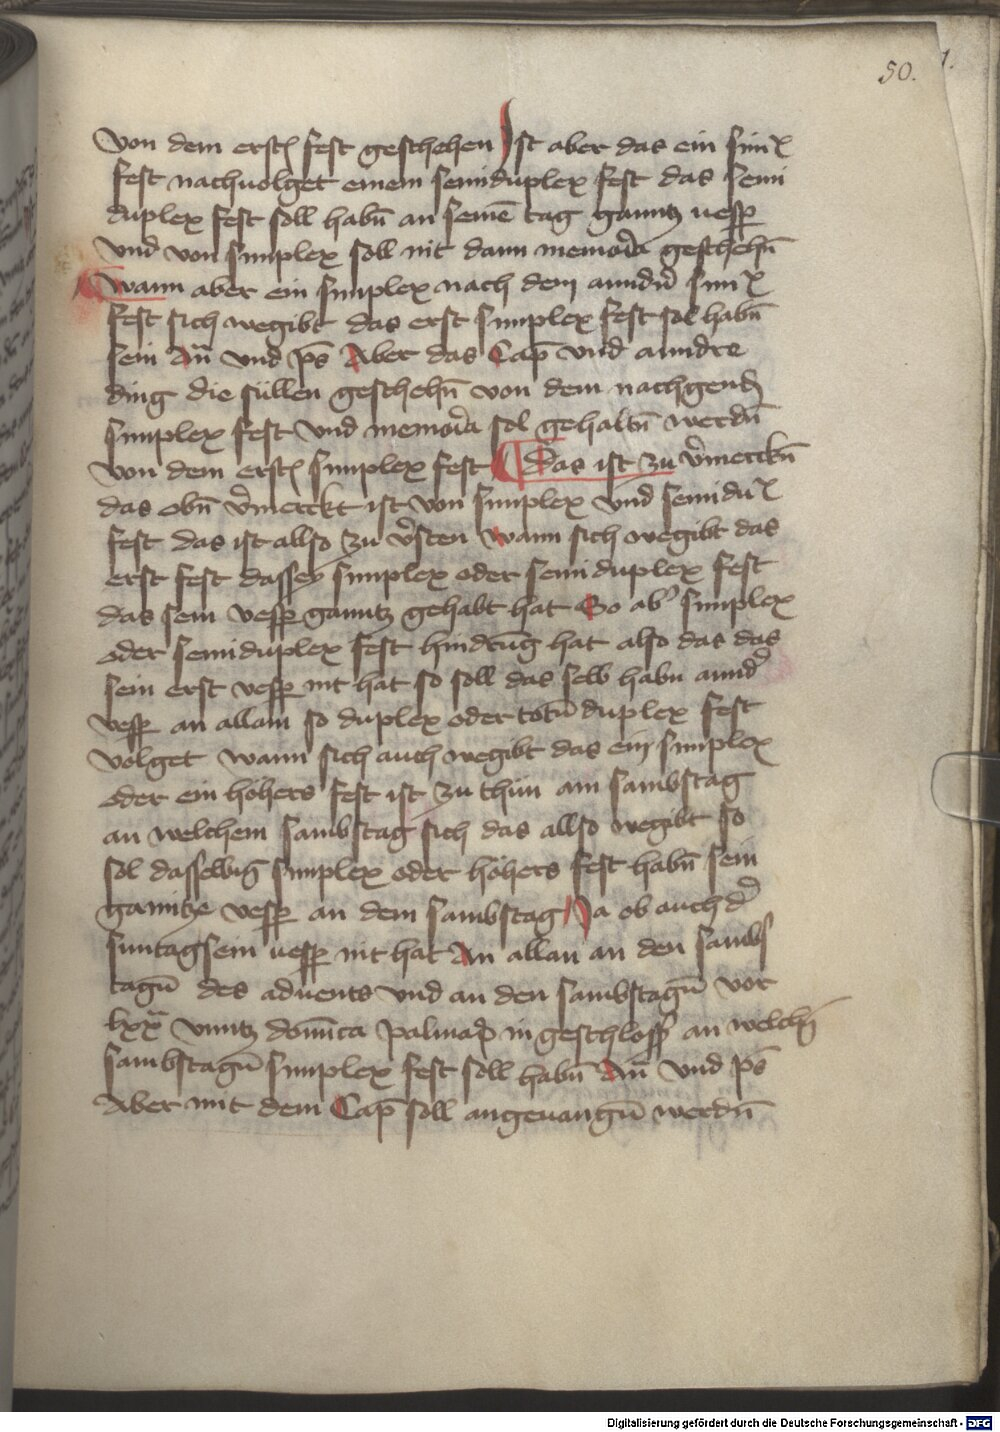 50. 1.
von dem erstñ fest geschehen Ist aber das ein simꝉ
fest nachuolget einem semiduplex fest das semi
duplex fest soll habñ an seinē tag ganntz uesp̄
vnd von simplex soll nit dann memoria geschehñ
Wann aber ein simplex nach dem anndñ simꝉ
fest sich wegibt das erst simplex fest sol habñ
sein Añ vnd p̄s Aber das Cap̄ vnd anndre
ding die süllen geschehñ von dem nachgendñ
simplex fest vnd memoria sol gehaltñ werdñ
von dem erstñ simplex fest Das ist zu v̄merckñ
das obñ v̄merckt ist von simplex vnd semiduꝉ
fest das ist allso zu v̄sten wann sich wegibt das
erst fest dassey simplex oder semiduplex fest
das sein vesp̄ ganntz gehabt hat So ab' simplex
oder semiduplex fest hindrūg hat also das das
sein erst vesp̄ nit hat so soll das selb habñ annd'
vesp̄ an allain so duplex oder totū duplex fest
volget wann sich auch wegibt das ein simplex
oder ein höhers fest ist zu thün am sambstag
an welchem sambstag sich das allso wegibt so
sol dasselbig simplex oder höhers fest habñ sein
ganntze vesp̄ an dem sambstag Ja ob auch d'
suntag sein uesp̄ nit hat An allain an den sambs
tagñ des aduents vnd an den sambstagñ vor
lxxᵃ vnntz domīca palmaꝝ in geschlossñ an welchñ
sambstagñ simplex fest soll habñ Añ vnd p̄s
Aber mit dem Cap̄ soll angeuangñ werdñ
Digitalisierung gefördert durch die Deutsche Forschungsgemeinschaft - DFG